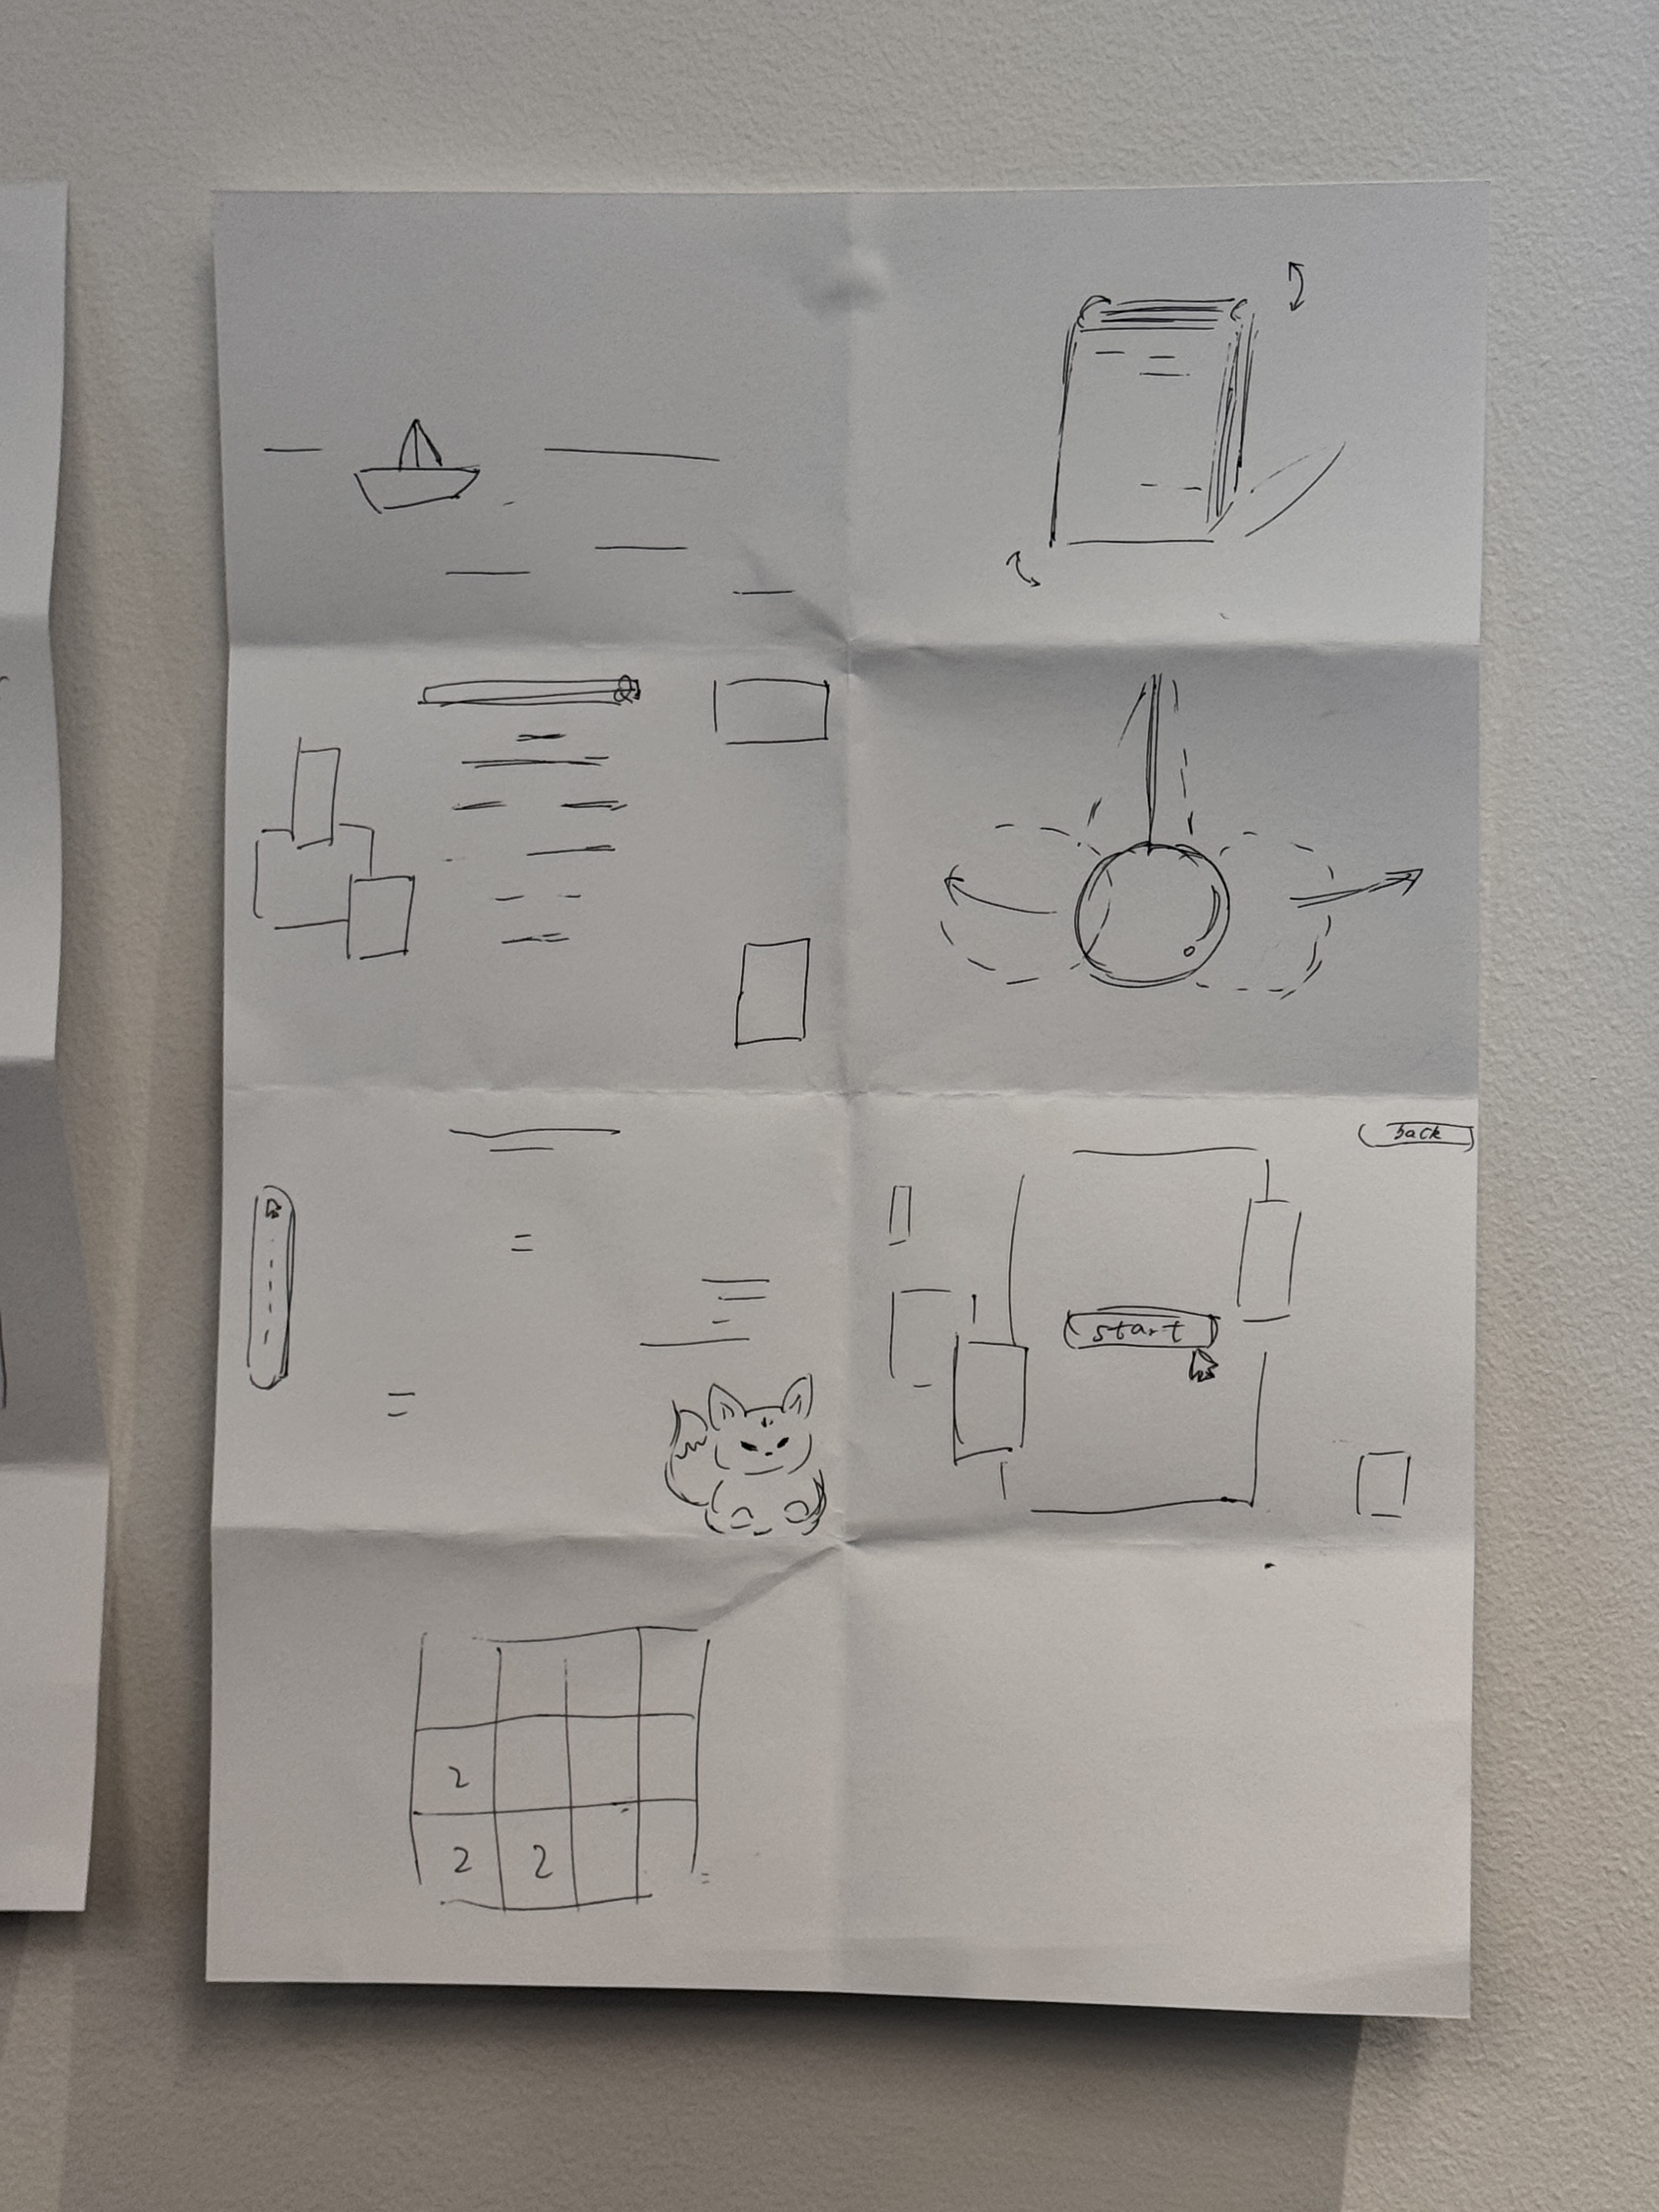 back
start
2
2 2